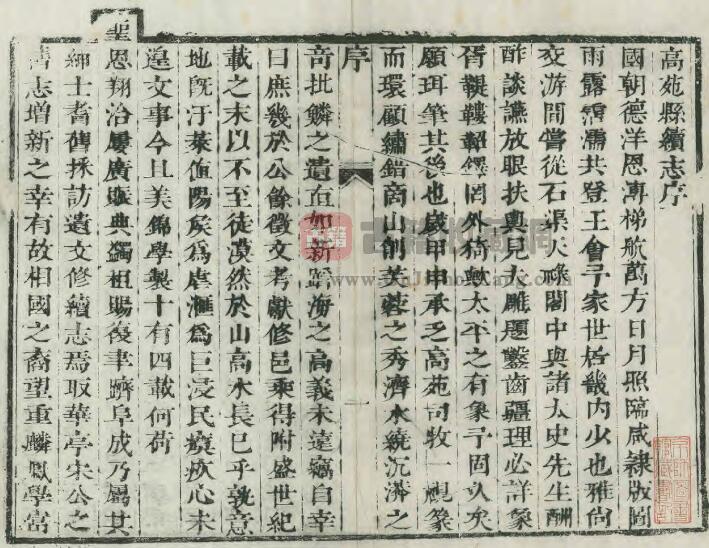 高苑縣續志序
國朝德洋恩溥梯航萬方日月照臨咸隸版圖
雨露霑濡共登王會予家世居畿内少也雅尚
交游間嘗從石渠天祿閣中與諸太史先生酬
酢談讌放眼扶輿見夫雕題鑿齒疆理必詳象
胥鞮鞻軺鐸罔外猗歟太平之有象予固久矣
願珥筆其後也歲甲申承乏高苑司牧一視篆
而環顧繡錯商山削芙蓉之秀濟水繞沉漭之
序
一
奇批鱗之遺直如新蹈海之高義未遠竊自幸
曰庶幾於公餘徵文考獻修邑乘得附盛世紀
載之末以不至徒漠然於山高水長已乎孰意
地既汙萊值陽矦為虐滙為巨浸民瘼疚心未
遑文事今且美錦學製十有四載何荷
聖恩翔洽屢廣賑典蠲租賜復聿躋阜成乃屬其
紳士耆舊採訪遺文修續志焉取華亭宋公之
舊志增新之幸有故相國之裔望重麟鳳學富
古籍收藏網